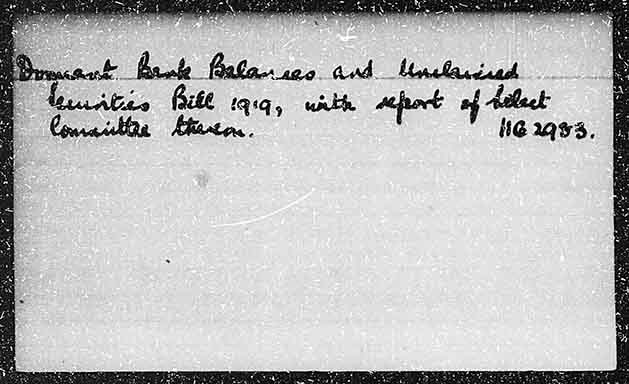 Dormant Bank Balances and Unclaimed
Securities Bill 1919, with report of Select
Committee thereon. HG 2983.